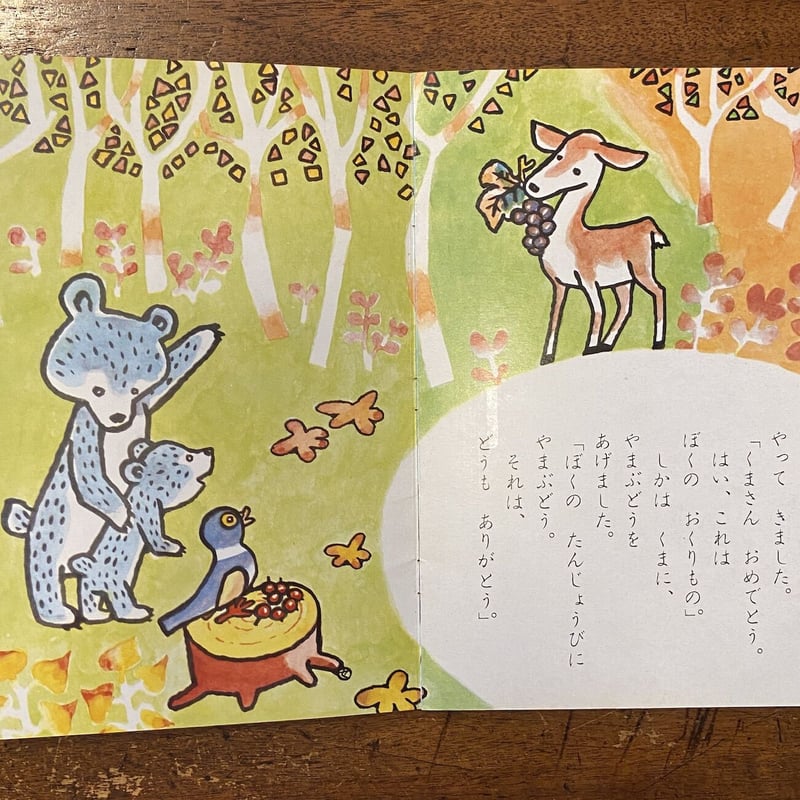 やって きました。
「くまさん おめでとう。
はい、これは
ぼくの おくりもの」。
しかは くまに、
やまぶどうを
あげました。
「ぼくの たんじょうびに
やまぶどう。
それは、
どうも ありがとう」。